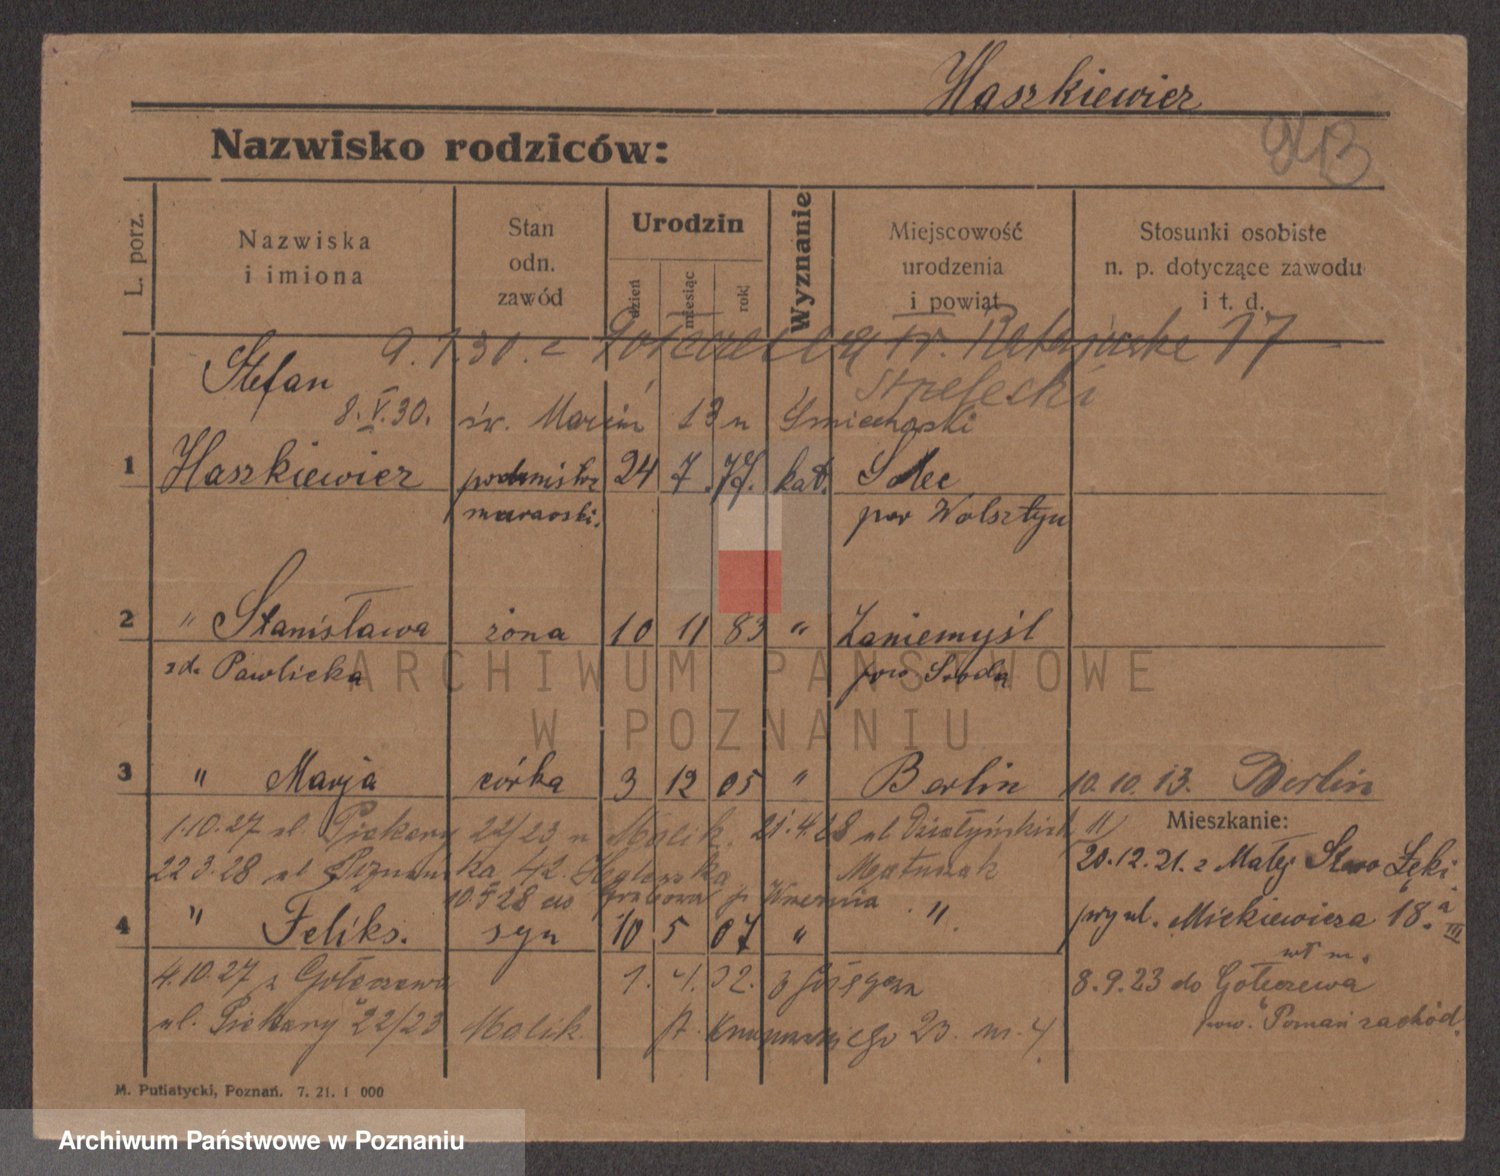 Haszkiewicz
Nazwisko rodziców:
L. porz.
Nazwiska
i imiona
Stan
odn.
zawód
Urodzin
dzień
miesiąc
rok
Wyznanie
Miejscowość
urodzenia
i powiat
Stosunki osobiste
n. p. dotyczące zawodu
i t. d.
9.1.30. z 17
Stefan
Strzelecki
8.V.30. św. Marcin 13
1 Haszkiewicz podmistrz 24 7. 77. kat.
murarski. pow Wolsztyn
2 " Stanisława żona 10 11 83 " Zaniemyśl
zd. Pawlicka pow Środa
3 " Marja córka 3 12 05 " Berlin 10.10.13. Berlin
1.10.27 ul. Piekary 22/23 Malik. 21.4.28 ul Działyńskich 11
Mieszkanie:
22.3.28 ul 42. Matuszak
20.12.21. z Małej Łęki
4 " Feliks. syn 10 5 07 " ".
przy ul. Mickiewicza 18.a III
4.10.27 z Gołeczewa 1. 4. 32. z
8.9.23 do Gołeczewa
ul. Piekary 22/23 Malik. 23. m. 4
pow. Poznań zachód.
M. Putiatycki, Poznań. 7. 21. 1 000
ARCHIWUM PAŃSTWOWE
W POZNANIU
Archiwum Państwowe w Poznaniu